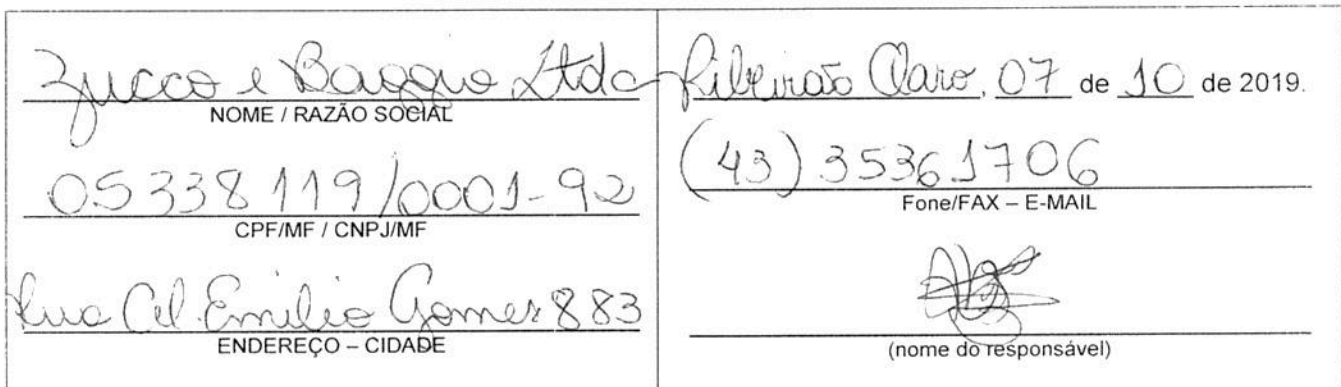 Zucco e Baggio Ltda
NOME / RAZÃO SOCIAL
05338119/0001-92
CPF/MF / CNPJ/MF
Rua Cel. Emilio Gomes 883
ENDEREÇO – CIDADE
Ribeirão Claro, 07 de 10 de 2019.
(43) 35361706
Fone/FAX – E-MAIL
(nome do responsável)